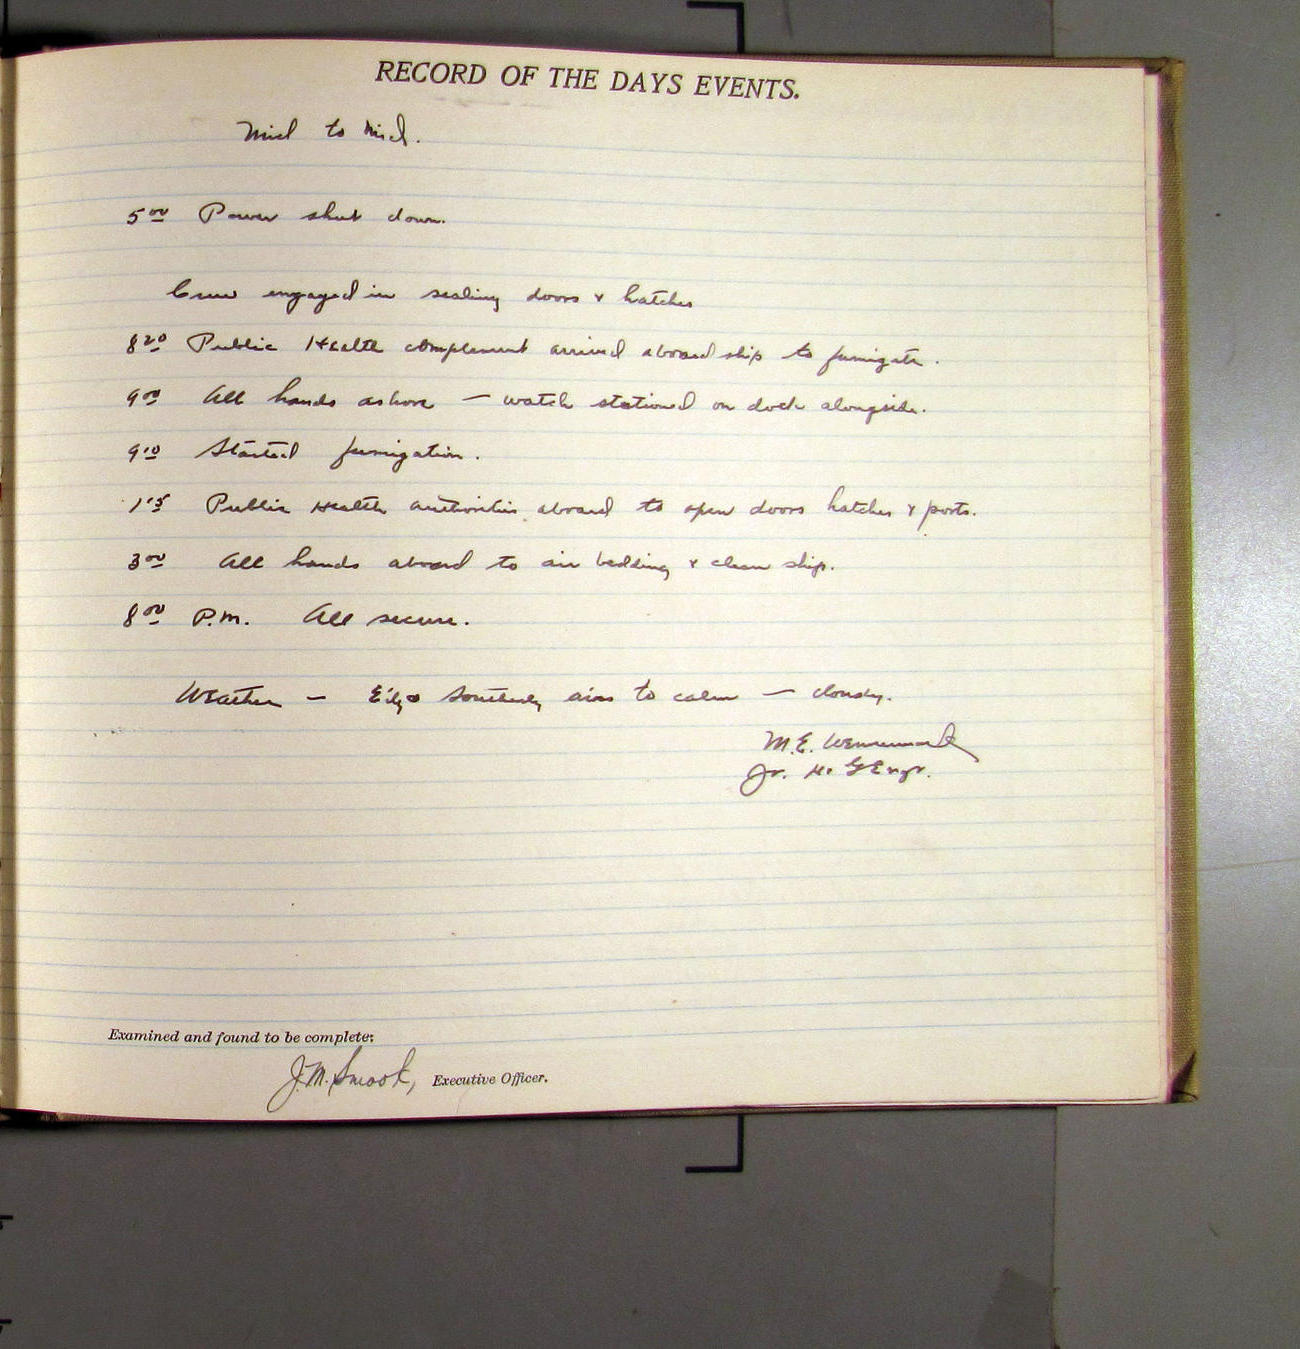 RECORD OF THE DAYS EVENTS.
Mid to Mid.
5 00 Power shut down.
Crew engaged in sealing doors & hatches
8 20 Public Health complement arrived aboard ship to fumigate.
9 00 All hands ashore — watch stationed on dock alongside.
9 10 Started fumigation.
1 15 Public Health authorities aboard to open doors hatches & ports.
3 00 All hands aboard to air bedding & clean ship.
8 00 P.M. All secure.
Weather — southerly airs to calm — cloudy.
M.E. Wennermark
Jr. H. & G Engr.
Examined and found to be complete:
J.M. Smook, Executive Officer.